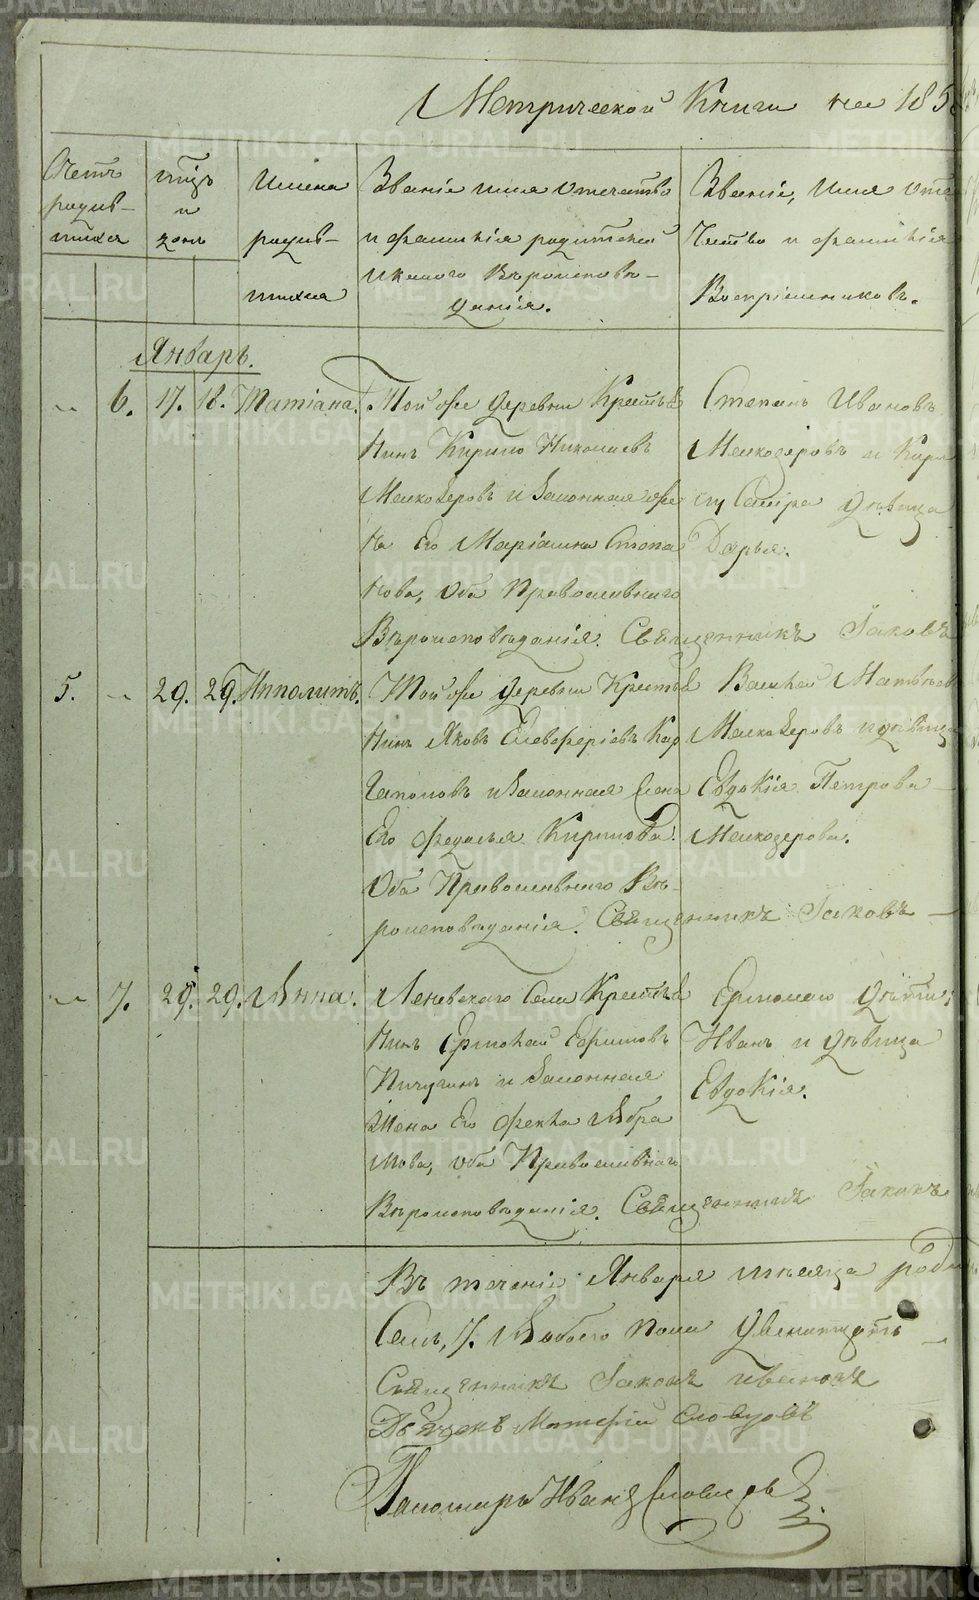 Метрической Книги на 185
Счетъ
родив-
шихся
мѣсяцъ
и
день
Имена
родив-
шихся
Званіе имя отечество
и фамилія родителей
и какого Вѣроисповѣ-
данія.
Званіе, имя, оте
чество и фамилія
Воспріемниковъ.
Январь.
6. 17. 18. Татіана.
Той же деревни Кресть
нинъ Кирило Николаевъ
Мелкозеровъ и законная же
на Его Маріамна Степа
нова, оба Православнаго
Вѣроисповѣданія. Священникъ Іаковъ
Степанъ Ивановъ
Мелкозеровъ и Кири
Сестра дѣвица
Дарья.
5. 29. 29. Ипполитъ.
Той же деревни Кресть
нинъ Яковъ Елевферіевъ Кар
гаполовъ и законная жена
Его Федосья Кирилова.
Оба Православнаго Вѣ-
роисповѣданія. Священникъ Іаковъ
Василей Матвѣев
Мелкозеровъ и дѣвица
Евдокія Петрова
Мелкозерова.
7. 29. 29. Анна.
Леневскаго Села Кресть
нинъ Ермолай Ефимовъ
Пичугинъ и законная
жена Его Фекла Абра
мова, оба Православнаго
Вѣроисповѣданія. Священникъ Іаковъ
Ермолаю дѣти;
Иванъ и дѣвица
Евдокія.
Въ теченіе Января мѣсяца роди
Семь, 7. Абоего пола двенатцать
Священникъ Іаковъ Ивановъ
Дьячекъ Матфій Словцовъ
Пономарь Иванъ Словцовъ
METRIKI.GASO-URAL.RU